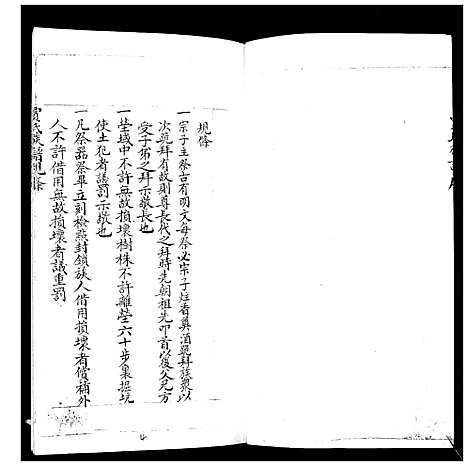 規條
一宗子主祭古有明文每祭必宗子炷香奠酒與拜族衆以
次與拜有故則尊長代之拜時先朝祖先叩首以後父兄方
受子弟之拜示敬長也
一塋域中不許無故損壞樹株不許離塋六十步內掘坑
使土犯者議罰示敬也
一凡祭器祭畢立刻檢點封鎖族人借用損壞者償補外
人不許借用無故損壞者議重罰
氏族譜規條